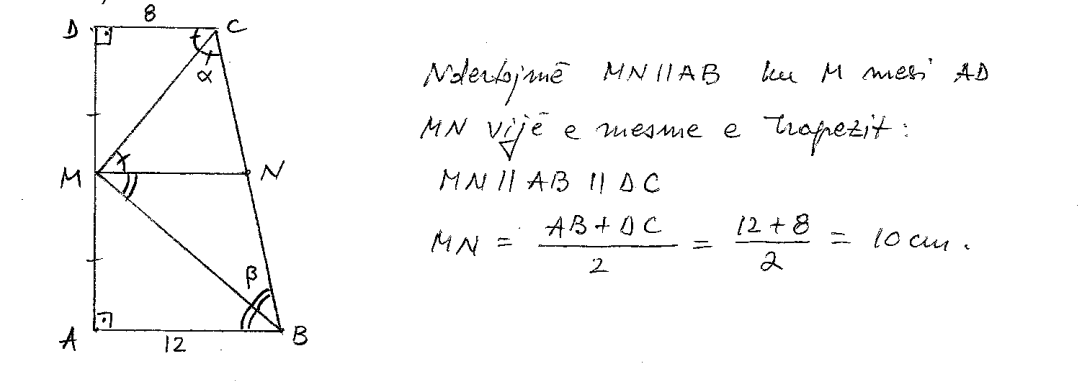 8
D
C
α
M
N
β
A
12
B
Ndertojmë MN//AB ku M mesi AD
MN vijë e mesme e trapezit:
MN // AB // DC
MN = AB + DC / 2 = 12 + 8 / 2 = 10 cm.